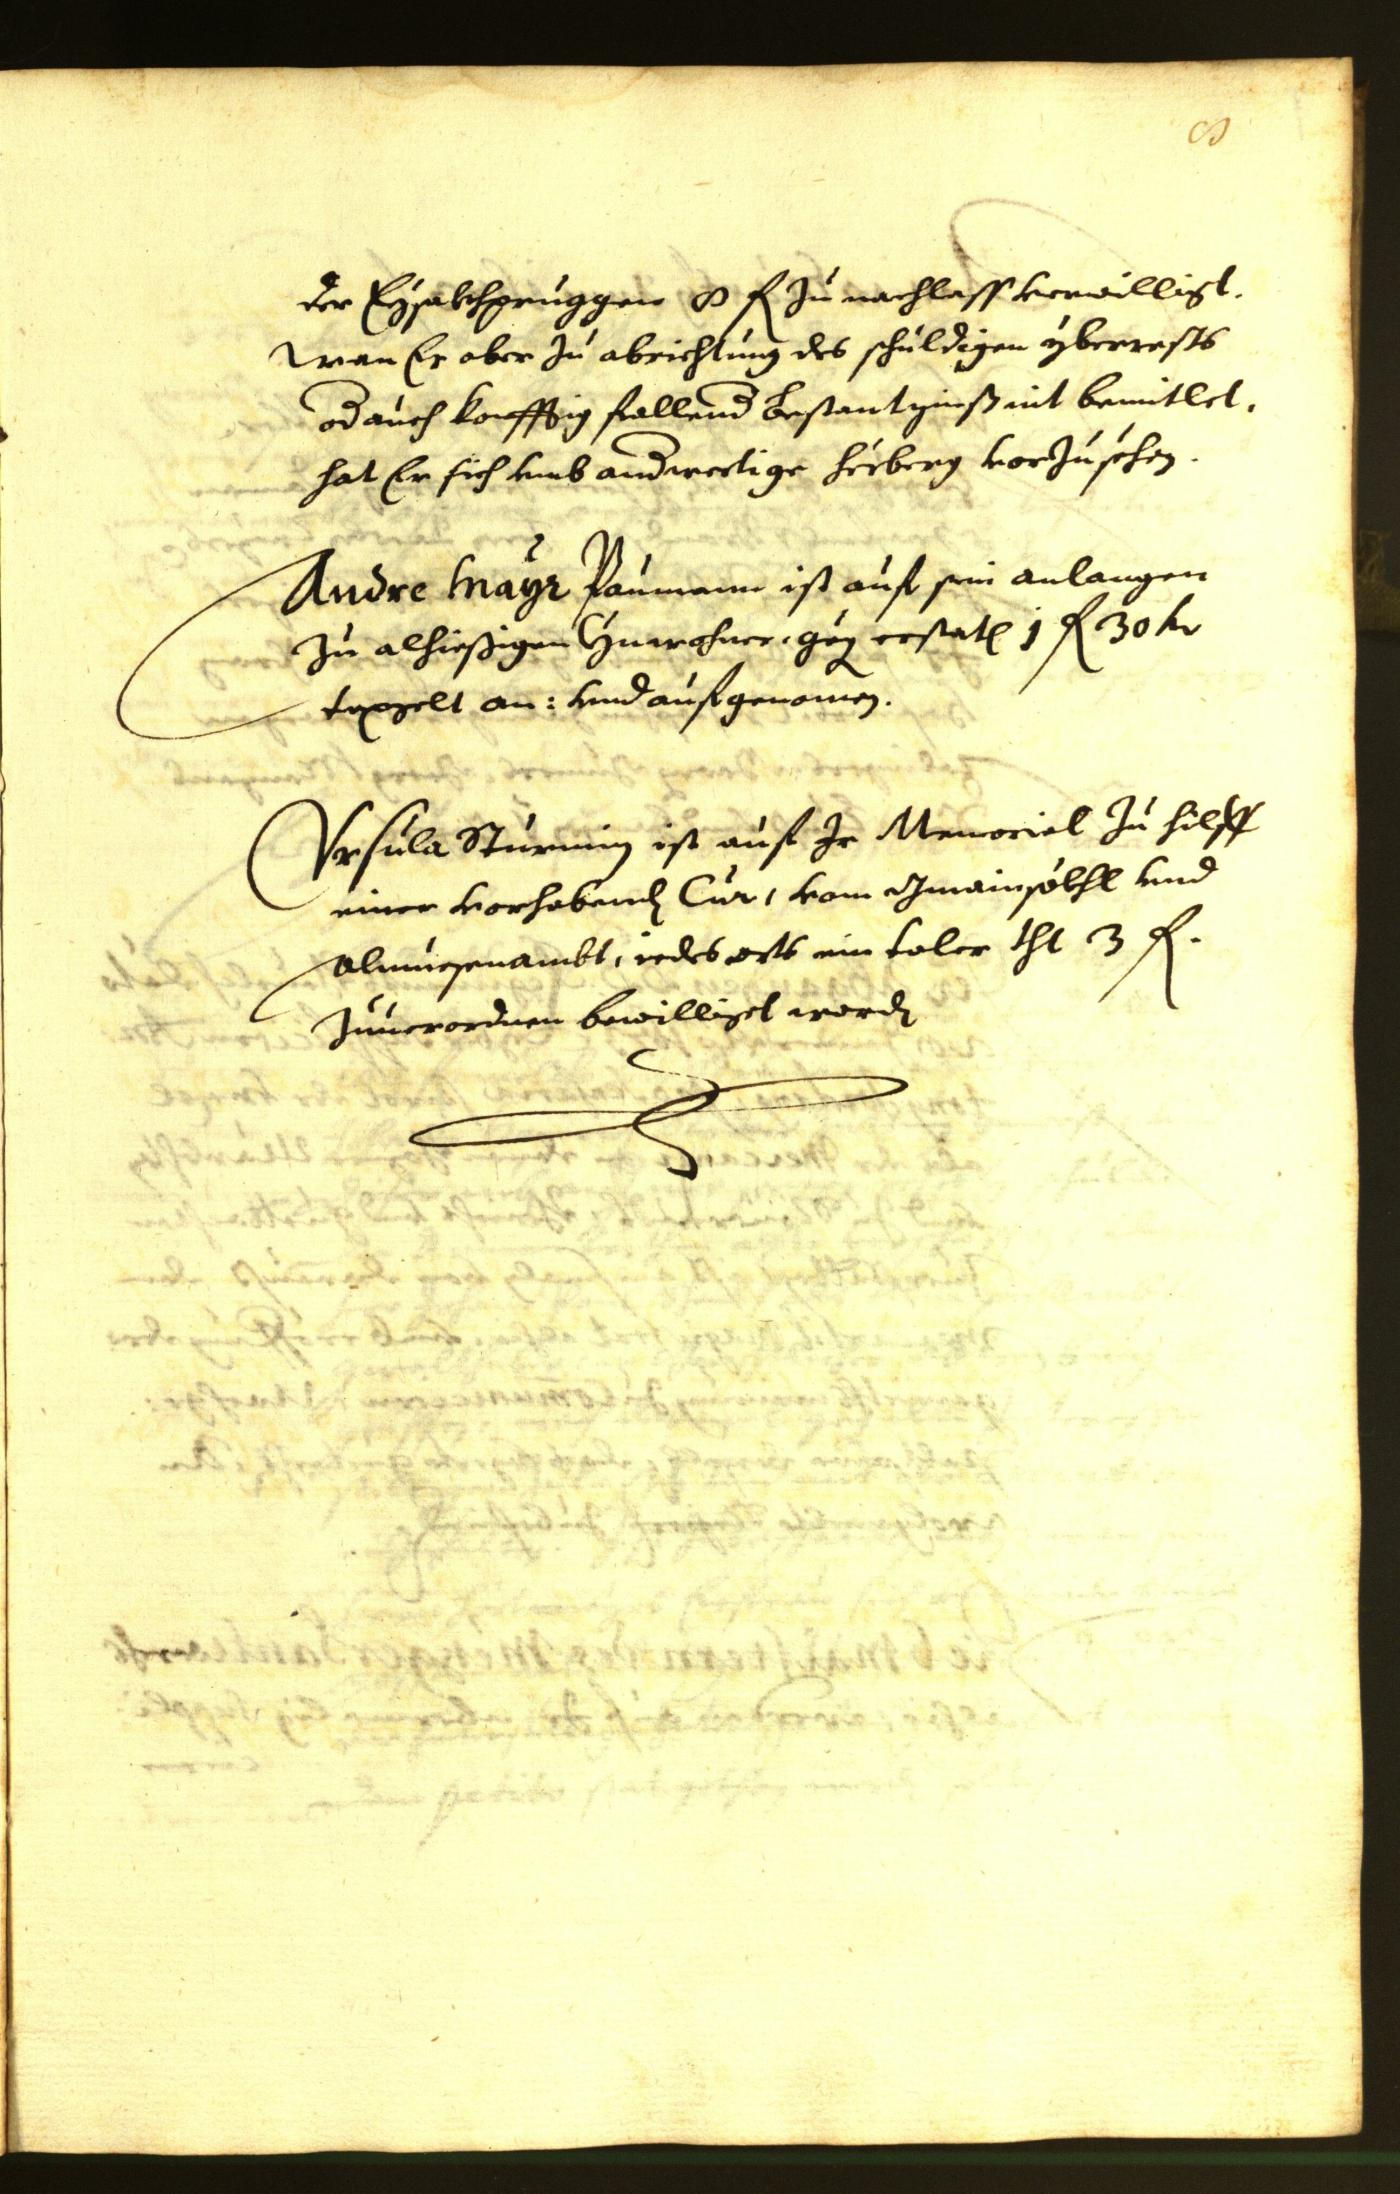 8
der Eysakhpruggen 8 f zu nachlass verwilligt.
wan Er aber zu abrichtung des schuldigen yberrests
od auch konfftig fallend bestantzinß nit bemitlet,
hat Er sich umb anderwertige herberg vorzusehen.
Andre Mayr Paumann ist auf sein anlangen
zu alhiesigen Ynwohner, gegen erstat 1 f 30 kr
taxgelt an: und aufgenomen.
Ursula Sturmin ist auf Ir Memorial zu hilff
einer vorhabend Cur, vom Spital und
Almuesenambt, iedes orts ein taler tht 3 f.
zuverordnen bewilliget word